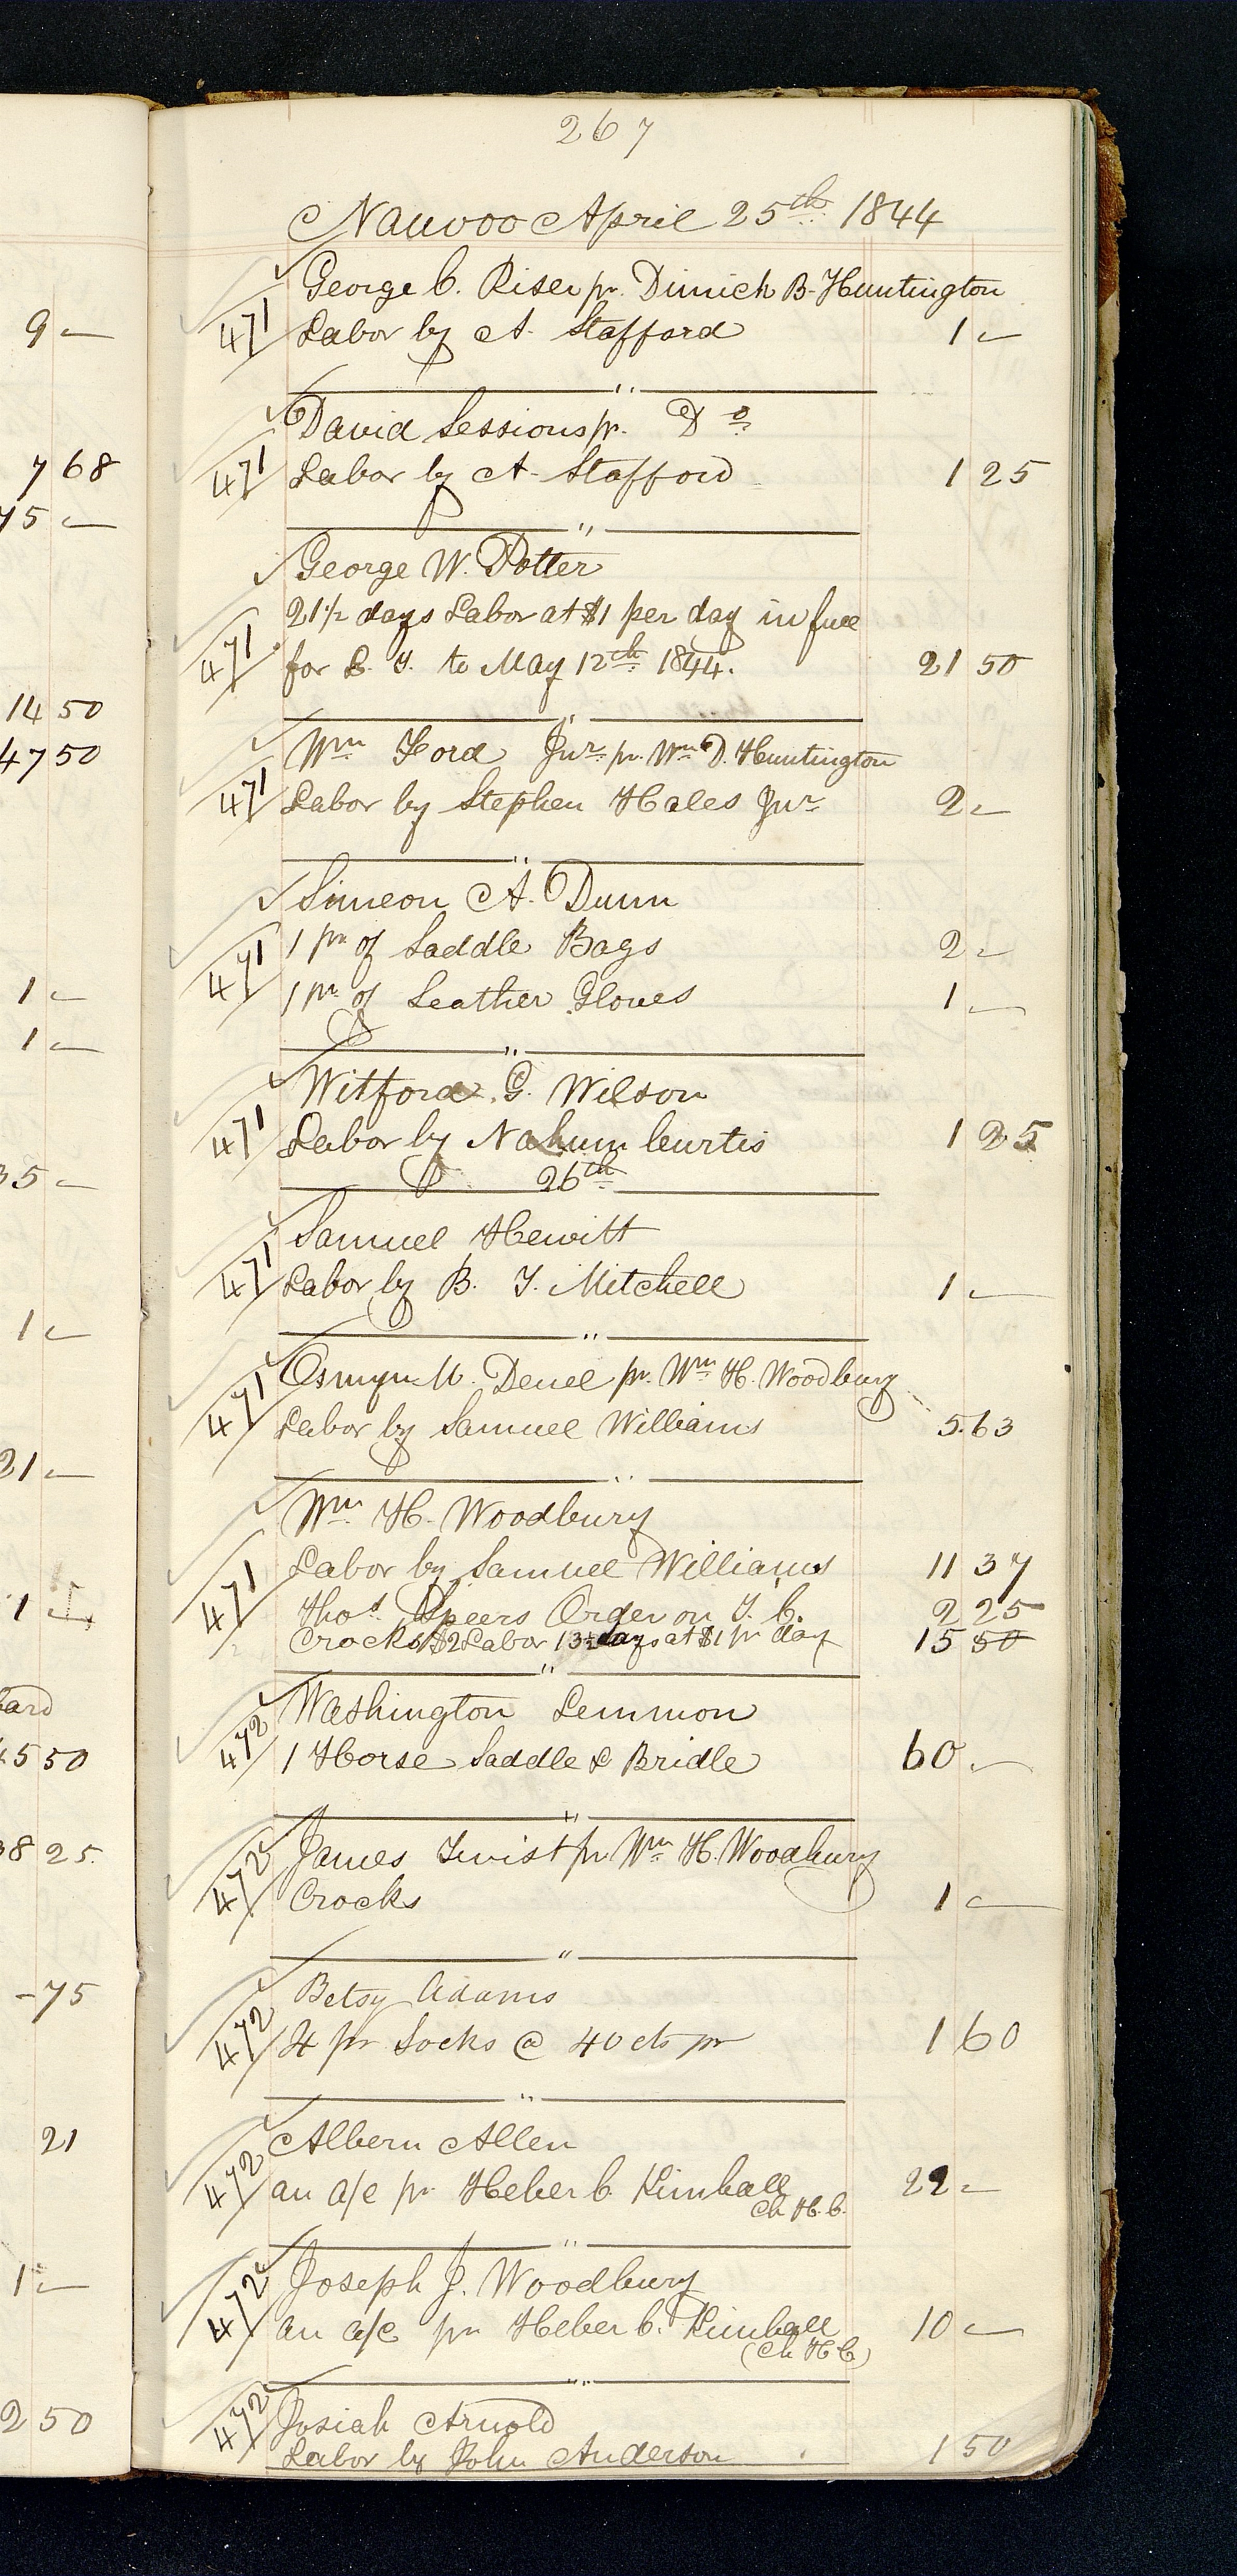 267
Nauvoo April 25th 1844
George C. Riser pr. Dimick B. Huntington
471 Labor by A. Stafford 1 –
"
David Sessions pr. Do
471 Labor by A. Stafford 1 25
"
George W. Potter
21 1/2 days Labor at $1 per day in full
471 for L. T. to May 12th 1844. 21 50
"
Wm Ford Jnr pr. Wm D. Huntington
471 Labor by Stephen Hales Jnr 2 –
"
Simeon A. Dunn
471 1 pr of Saddle Bags 2 –
1 pr of Leather Gloves 1 –
"
Witford G. Wilson
471 Labor by Nahum Curtis 1 25
26th
Samuel Hewitt
471 Labor by B. T. Mitchell 1 –
"
Osmyn M. Deuel pr. Wm H. Woodbury
471 Labor by Samuel Williams 5.63
"
Wm H. Woodbury
471 Labor by Samuel Williams 11 37
Thos Speers Order on T. C. 2 25
Crocks $2 Labor 13 1/2 days at $1 pr day 15 50
"
Washington Lemmon
472 1 Horse Saddle & Bridle 60 –
"
James Twist pr Wm H. Woodbury
472 Crocks 1 –
"
Betsy Adams
472 4 pr Socks @ 40 cts pr 1 60
"
Albern Allen
472 an a/c pr Heber C. Kimball 22 –
Ch H. C.
"
Joseph J. Woodbury
472 an a/c pr Heber C. Kimball 10 –
(Ch H C)
"
472 Josiah Arnold
Labor by John Anderson 1 50
9 –
7 68
75 –
14 50
47 50
1 –
1 –
35 –
1 –
21 –
1
ard
45 50
38 25
– 75
21
1 –
2 50